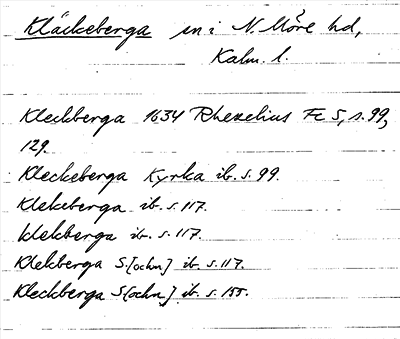 Kläckeberga sn i N. Möre hd,
Kalm. l.
Kleckberga 1634 Rhezelius Fc 5, s. 99,
129.
Kleckeberga Kyrka ib. s. 99.
Klekeberga ib. s. 117.
klekberga ib. s. 117.
Klekberga S[ochn] ib. s. 117.
Kleckberga S[ochn] ib. s. 155.